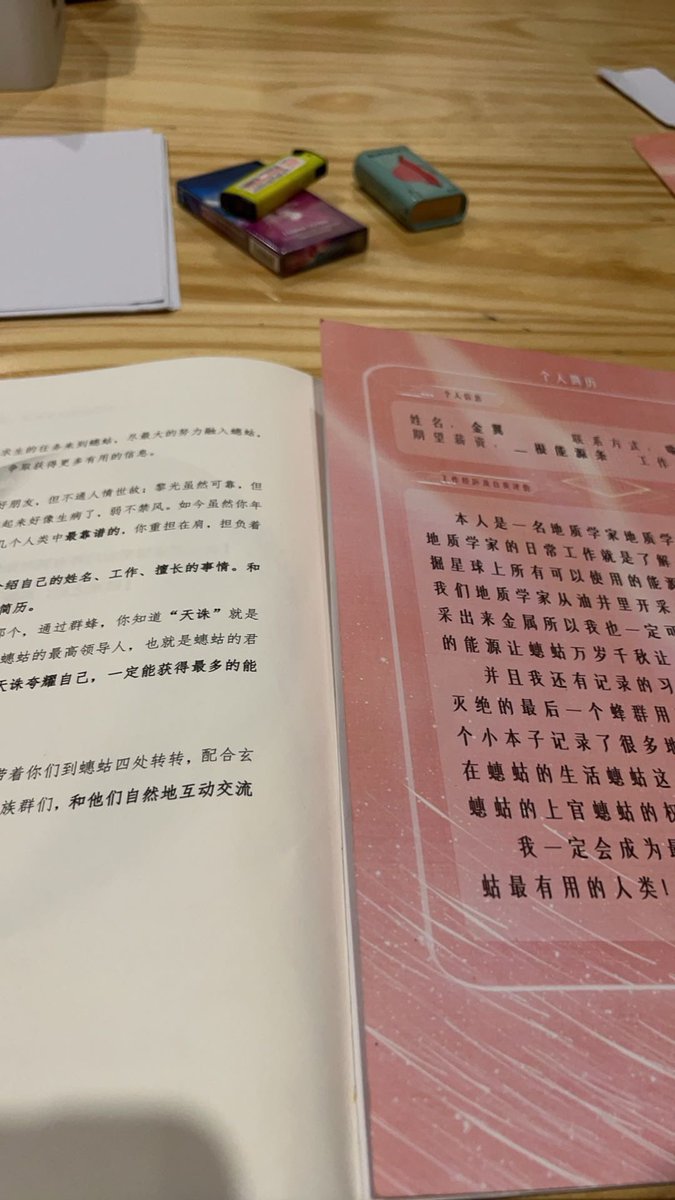 求生的任务来到蟪蛄，尽最大的努力融入蟪蛄，
争取获得更多有用的信息。
好朋友，但不通人情世故；黎光虽然可靠，但
起来好像生病了，弱不禁风。如今虽然你年
几个人类中最靠谱的，你重担在肩，担负着
介绍自己的姓名、工作、擅长的事情。和
简历。
那个，通过群蜂，你知道“天诛”就是
蟪蛄的最高领导人，也就是蟪蛄的君
天诛夸耀自己，一定能获得最多的能
带着你们到蟪蛄四处转转，配合玄
族群们，和他们自然地互动交流
个人简历
个人信息
姓名：金翼 联系方式：
期望薪资：一根能源条 工作
工作经历及自我评价
本人是一名地质学家地质学
地质学家的日常工作就是了解
掘星球上所有可以使用的能源
我们地质学家从油井里开采
采出来金属所以我也一定可
的能源让蟪蛄万岁千秋让
并且我还有记录的习
灭绝的最后一个蜂群用
个小本子记录了很多地
在蟪蛄的生活蟪蛄这
蟪蛄的上官蟪蛄的权
我一定会成为最
蛄最有用的人类！